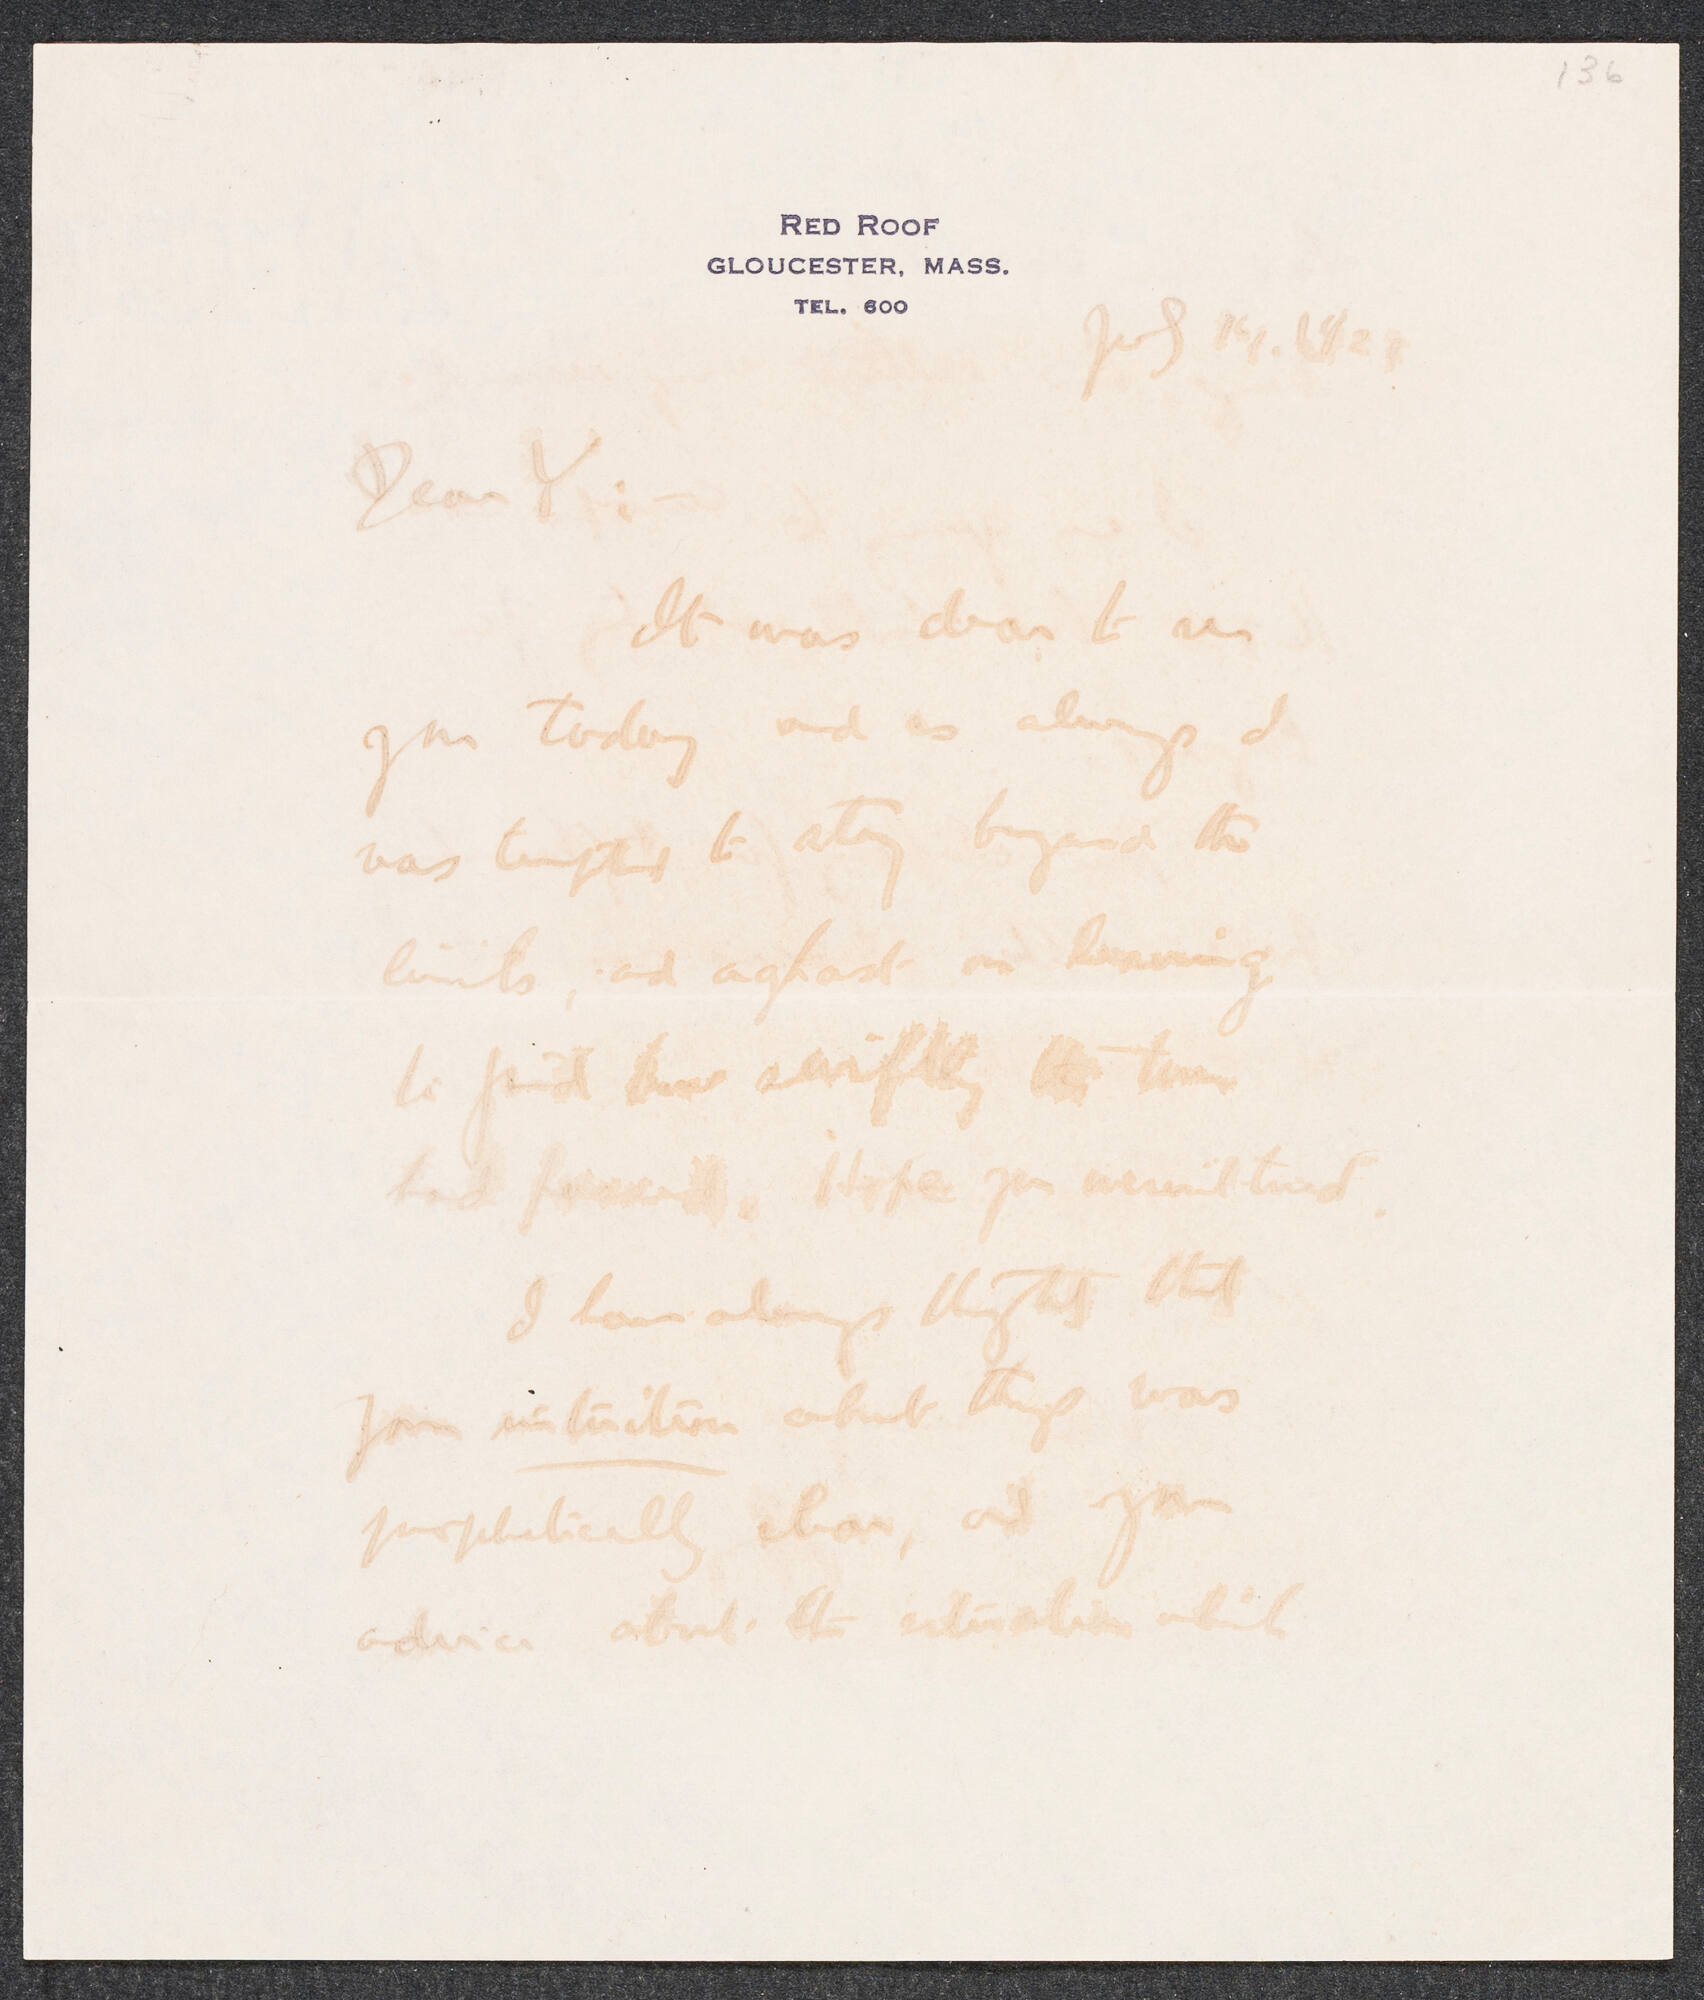 136
RED ROOF
GLOUCESTER, MASS.
TEL. 600
July
Dear Y :—
It was dear to see
you today and as always I
was tempted to stay beyond the
limits, and aghast on leaving
to find how swiftly the time
had passed. Hope you weren't tired.
I have always thought that
your intuition about things was
prophetically clear, and your
advice about the situation which